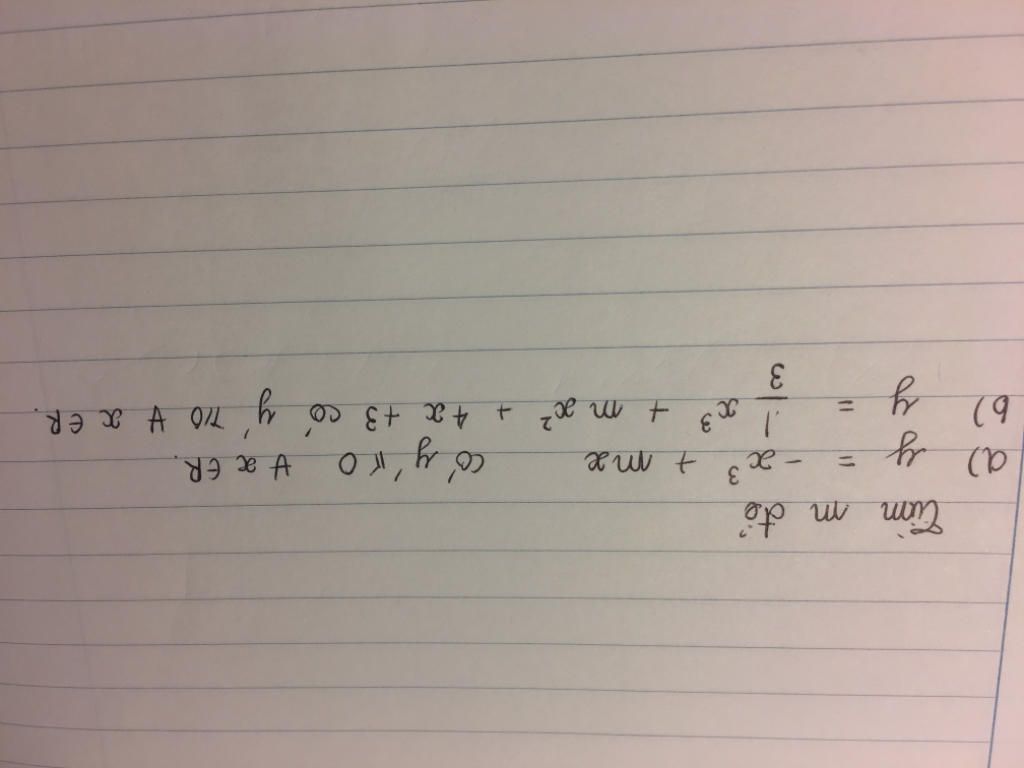 Tìm m để
a) y = -x³ + mx có y' ≤ 0 ∀ x ∈ R.
b) y = 1/3 x³ + mx² + 4x + 3 có y' ≥ 0 ∀ x ∈ R.